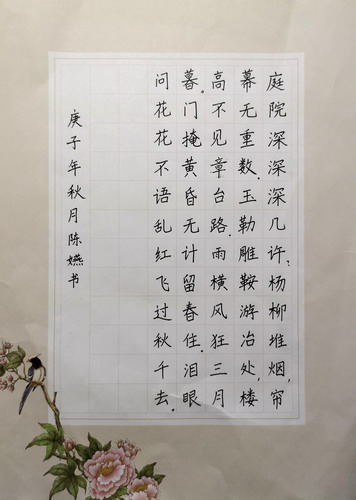 庭院深深深几许？杨柳堆烟，帘
幕无重数。玉勒雕鞍游冶处，楼
高不见章台路。雨横风狂三月
暮。门掩黄昏无计留春住。泪眼
问花花不语乱红飞过秋千去。
庚子年秋月陈嬿书